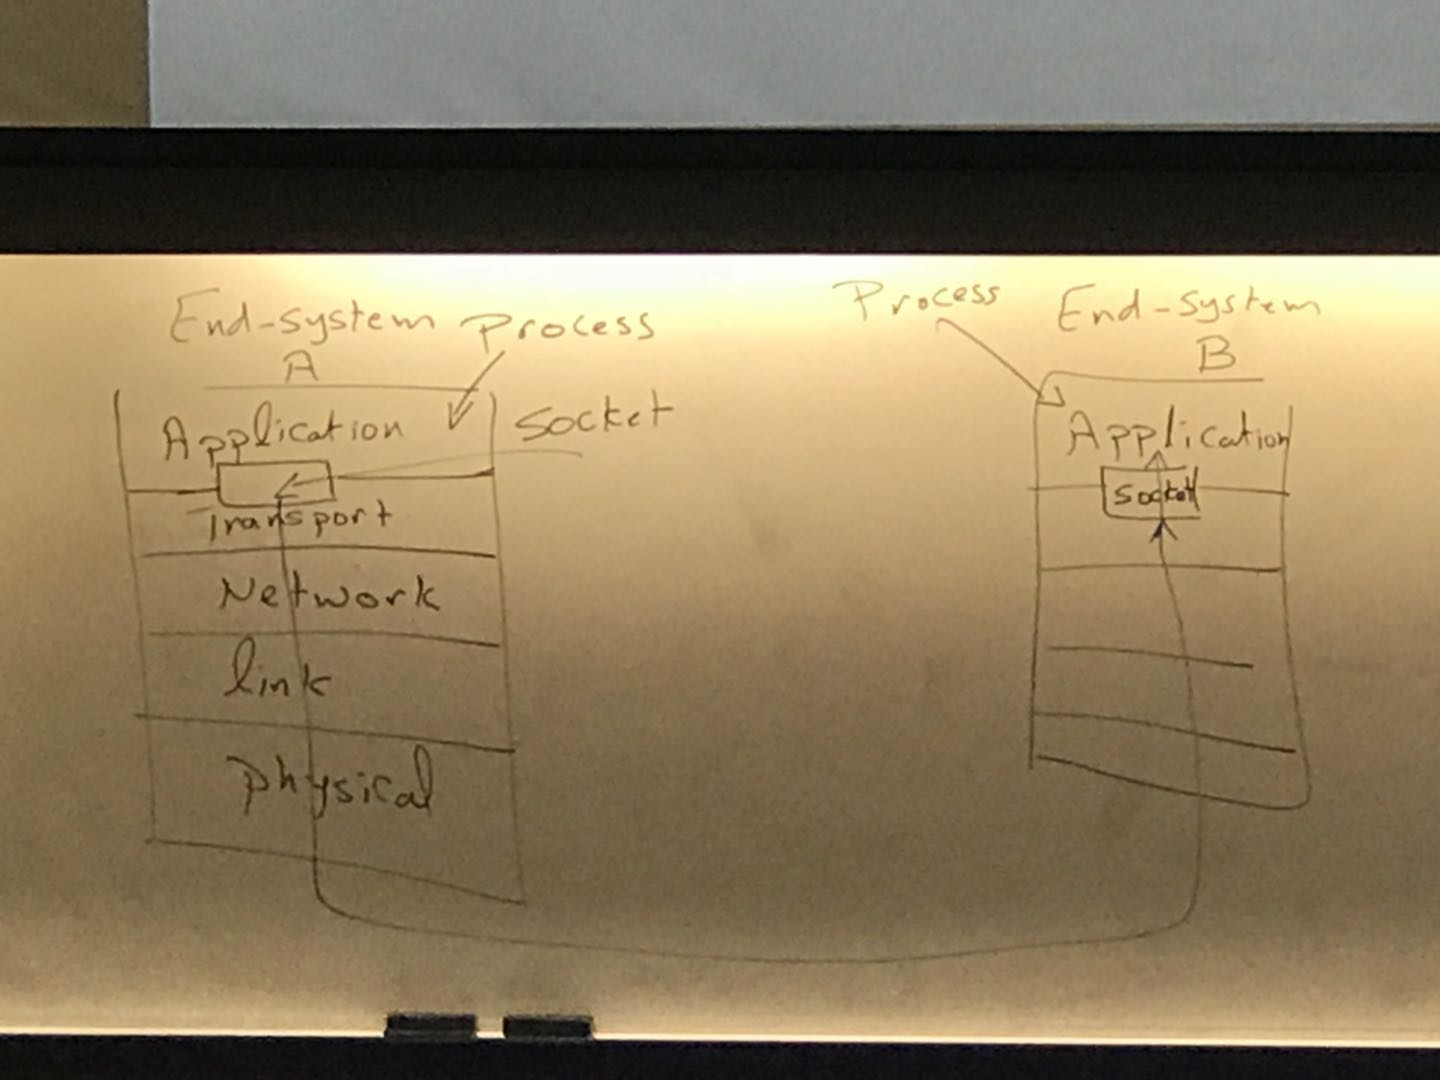 End-system
A
Process
Socket
Application
Transport
Network
link
physical
Process
End-system
B
Application
Socket